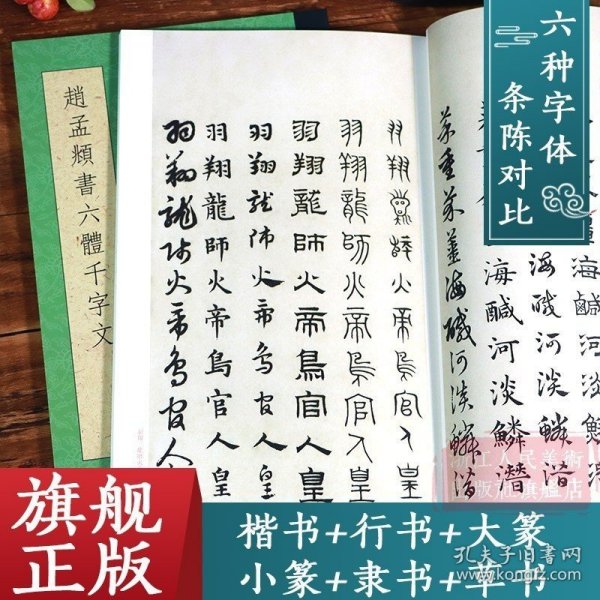 六种字体
条陈对比
趙孟頫書六體千字文
羽翔龍師火帝鳥官人皇
羽翔龍師火帝鳥官人皇
羽翔龍師火帝鳥官人皇
羽翔龍師火帝鳥官人皇
羽翔龍師火帝鳥官人皇
羽翔龍師火帝鳥官人
海鹹
海鹹河淡鱗
海鹹河淡鱗潛
菜重芥薑海鹹河淡鱗潛
浙江人民美術
出版社旗舰店
旗舰
正版
楷书+行书+大篆
小篆+隶书+草书
孔夫子旧书网
www.kongfz.com